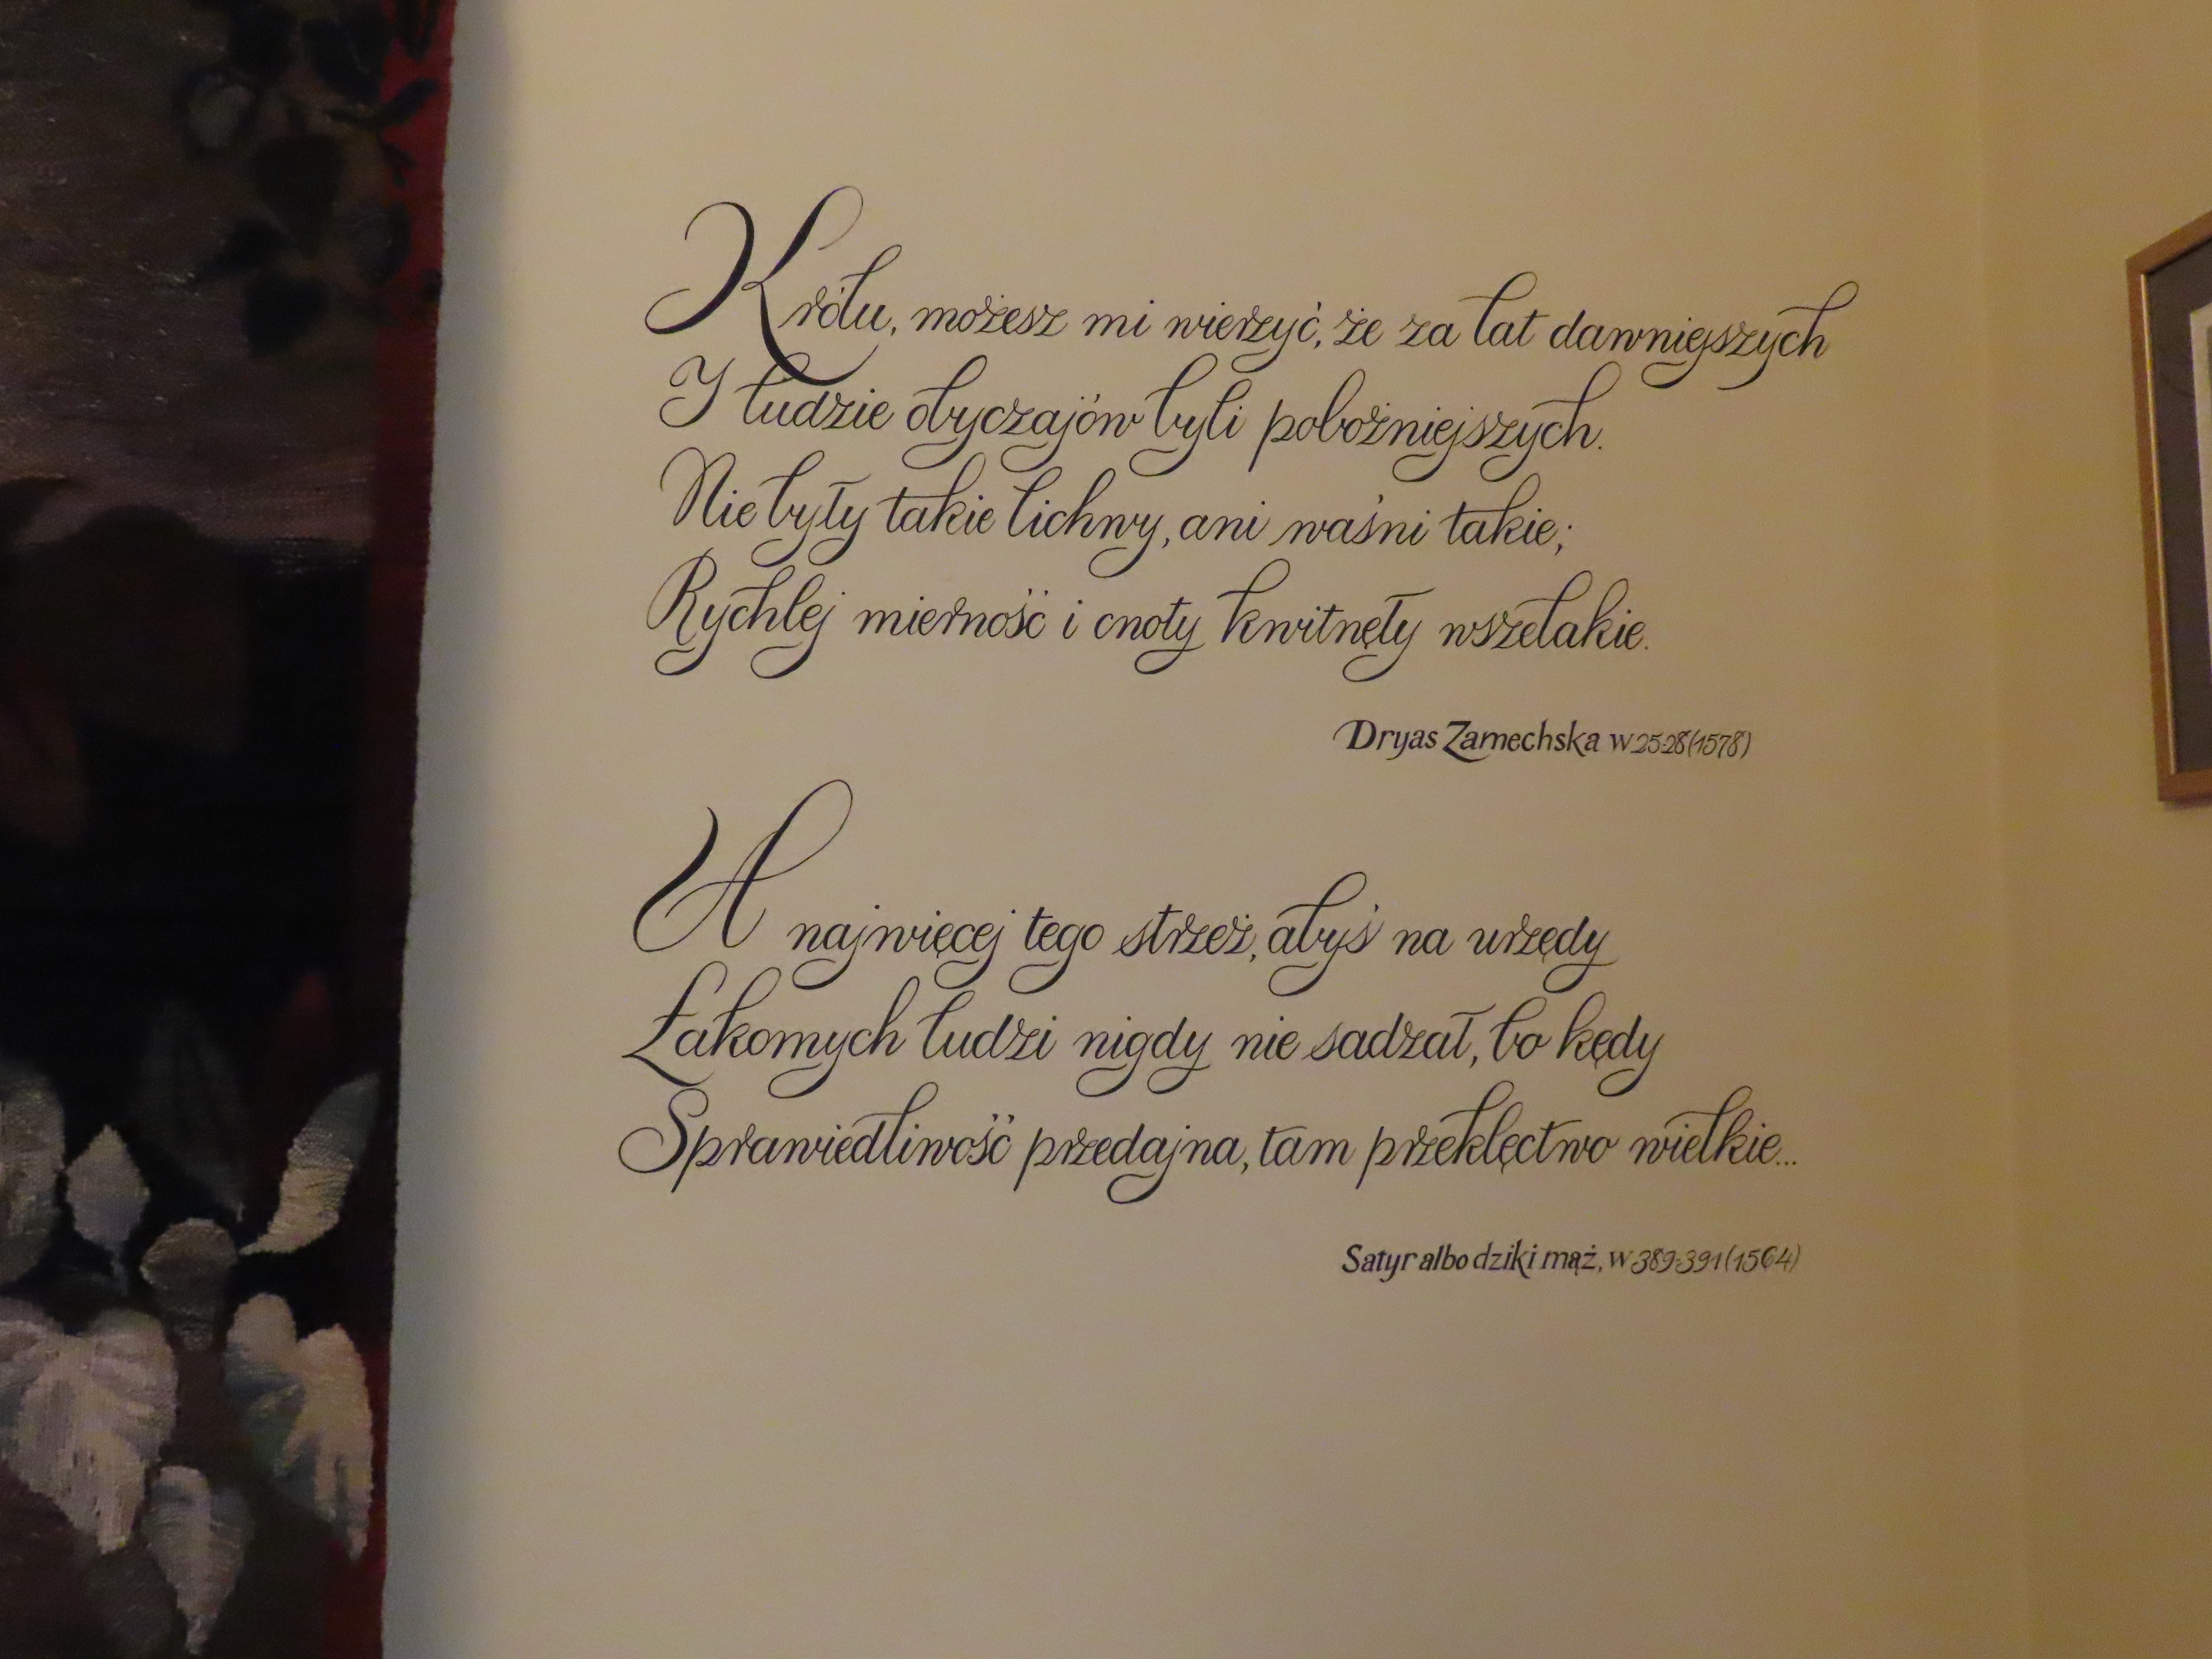 Królu, możesz mi wierzyć, że za lat dawniejszych
I ludzie obyczajów byli pobożniejszych.
Nie były takie lichwy, ani waśni takie;
Rychlej mierność i cnoty kwitnęły wszelakie.
Dryas Zamechska w 25-28 (1578)
A najwięcej tego strzeż, abyś na urzędy
Łakomych ludzi nigdy nie sadzał, bo kędy
Sprawiedliwość przedajna, tam przeklęctwo wielkie...
Satyr albo dziki mąż, w 389-391 (1564)